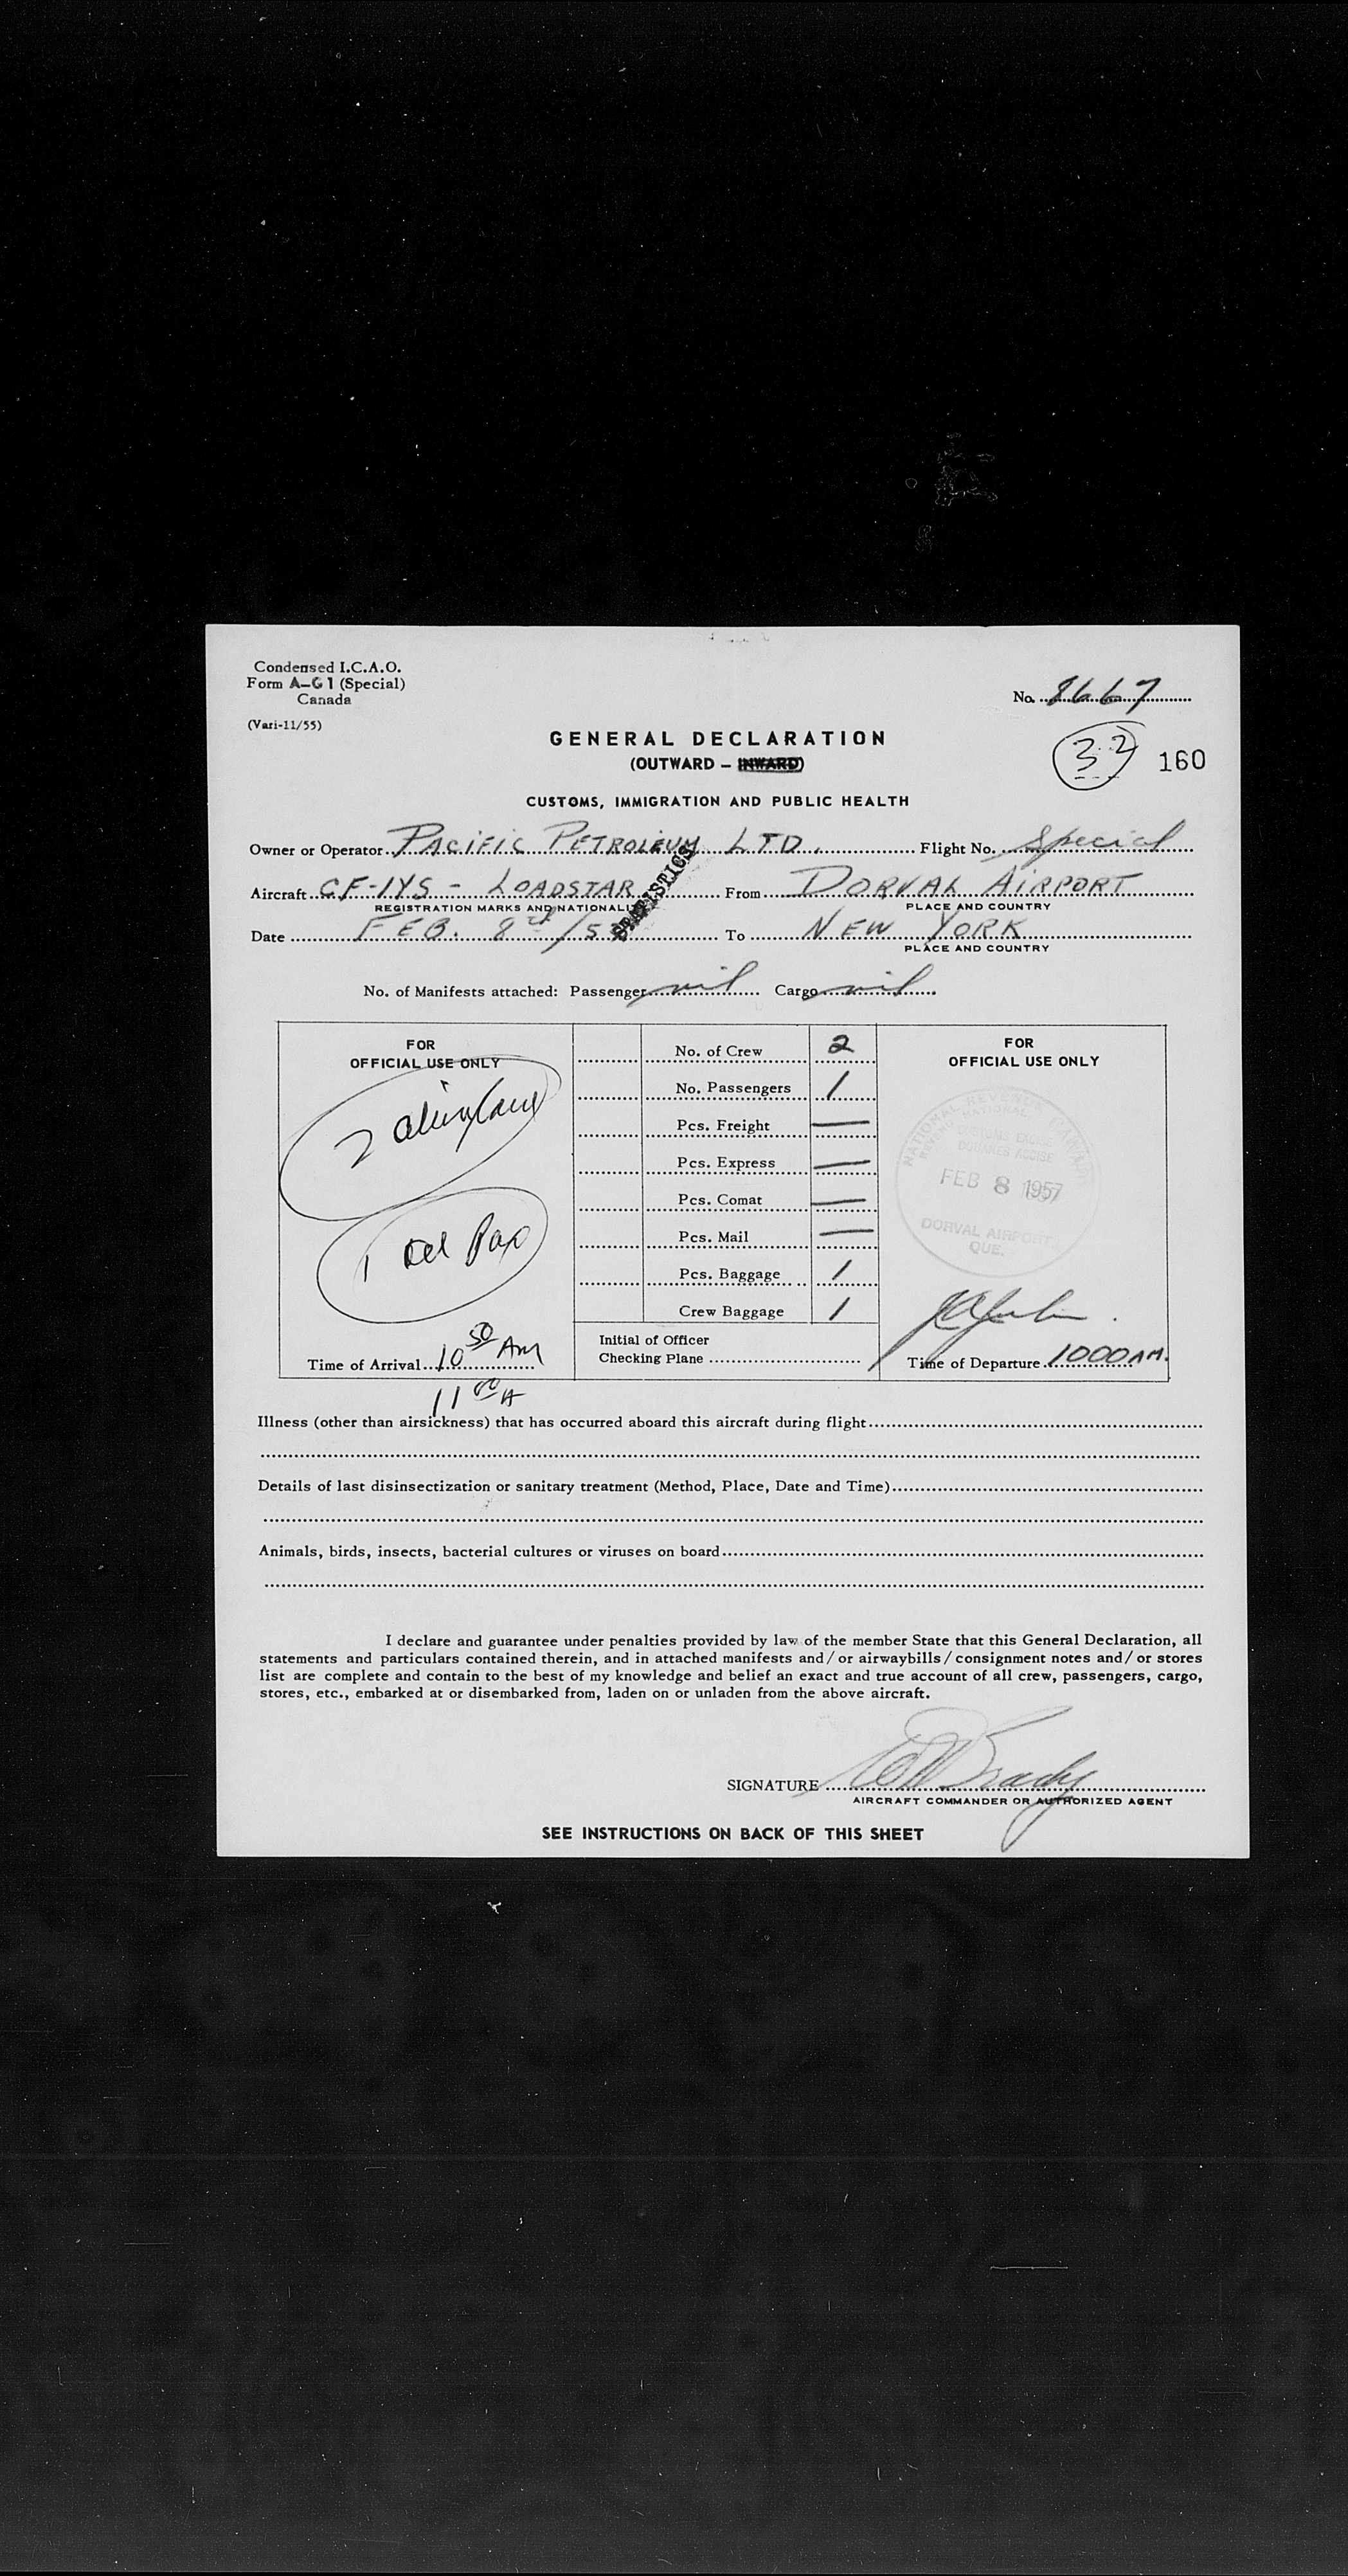 Condensed I.C.A.O.
Form A-G1 (Special)
Canada
(Vari-11/55)
No. 8667
32 160
GENERAL DECLARATION
(OUTWARD – INWARD)
CUSTOMS, IMMIGRATION AND PUBLIC HEALTH
Owner or Operator PACIFIC PETROLEUM LTD. Flight No. Special
Aircraft CF-IYS - LOADSTAR From DORVAL AIRPORT
REGISTRATION MARKS AND NATIONALITY PLACE AND COUNTRY
STATISTICS
Date FEB. 8th/57 To NEW YORK
PLACE AND COUNTRY
No. of Manifests attached: Passenger nil Cargo nil
FOR
OFFICIAL USE ONLY
2
1 Pax
Time of Arrival 10 50 AM
11 00 A
No. of Crew 2
No. Passengers 1
Pcs. Freight —
Pcs. Express —
Pcs. Comat —
Pcs. Mail —
Pcs. Baggage 1
Crew Baggage 1
Initial of Officer
Checking Plane
FOR
OFFICIAL USE ONLY
NATIONAL REVENUE CANADA
CUSTOMS EXCISE
DOUANES ACCISE
FEB 8 1957
DORVAL AIRPORT
QUE.
Time of Departure 1000 AM.
Illness (other than airsickness) that has occurred aboard this aircraft during flight
Details of last disinsectization or sanitary treatment (Method, Place, Date and Time)
Animals, birds, insects, bacterial cultures or viruses on board
I declare and guarantee under penalties provided by law of the member State that this General Declaration, all
statements and particulars contained therein, and in attached manifests and/or airwaybills/consignment notes and/or stores
list are complete and contain to the best of my knowledge and belief an exact and true account of all crew, passengers, cargo,
stores, etc., embarked at or disembarked from, laden on or unladen from the above aircraft.
SIGNATURE Brady
AIRCRAFT COMMANDER OR AUTHORIZED AGENT
SEE INSTRUCTIONS ON BACK OF THIS SHEET